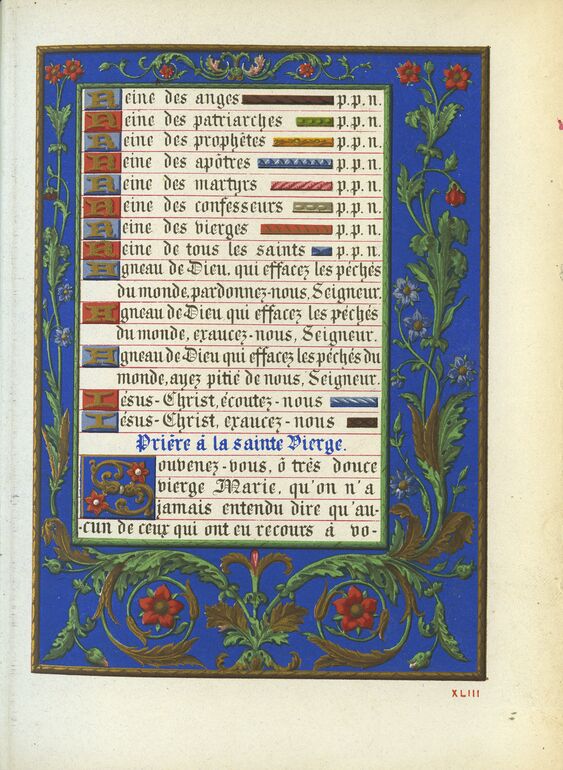 Reine des anges p.p.n.
Reine des patriarches p.p.n.
Reine des prophêtes p.p.n.
Reine des apôtres p.p.n.
Reine des martyrs p.p.n.
Reine des confesseurs p.p.n.
Reine des vierges p.p.n.
Reine de tous les saints p.p.n.
Agneau de Dieu, qui effacez les péchés
du monde, pardonnez-nous, Seigneur.
Agneau de Dieu qui effacez les péchés
du monde, exaucez-nous, Seigneur.
Agneau de Dieu qui effacez les péchés du
monde, ayez pitié de nous, Seigneur.
Iésus-Christ, écoutez-nous
Iésus-Christ, exaucez-nous
Prière à la sainte Vierge.
Souvenez-vous, ô très douce
vierge Marie, qu'on n'a
jamais entendu dire qu'au-
-cun de ceux qui ont eu recours à vo-
XLIII